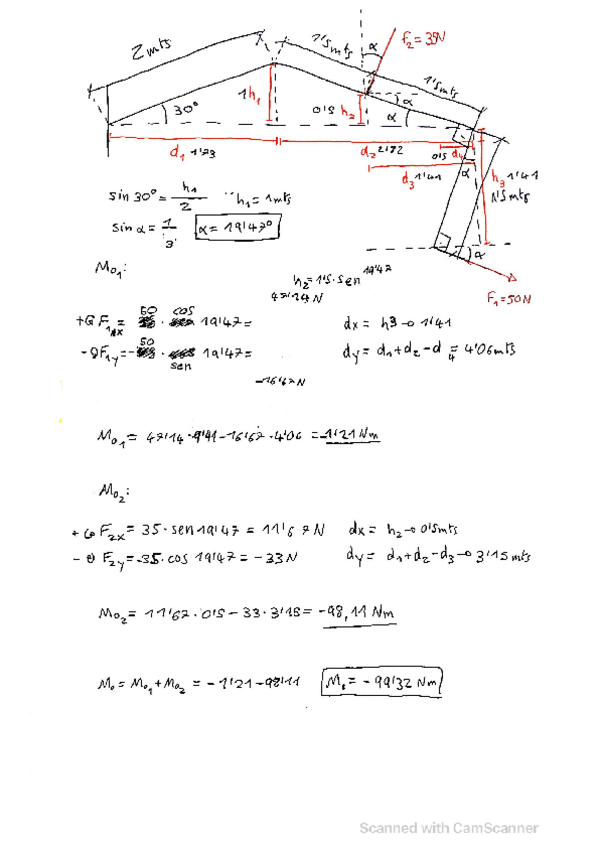 2 mts
1'5 mts
α
F₂ = 35N
1'5 mts
1h₁
30°
0'5
h₂
α
α
d₁ 1'73
d₂ 2'82
0'5 d₄
d₃ 1'41
α
h₃ 1'41
1'5 mts
α
F₁ = 50N
sin 30° = h₁/2 h₁ = 1 mts
sin α = 1/3 α = 19'47°
M₀₁:
h₂ = 1'5 · sen 19'47
47'14 N
+ F₁x = 50 · cos 19'47 =
dx = h3 → 1'41
- F₁y = - 50 · sen 19'47 =
dy = d₁ + d₂ - d₄ = 4'06 mts
-16'67 N
M₀₁ = 47'14 · 1'41 - 16'67 · 4'06 = -1'21 Nm
M₀₂:
+ F₂x = 35 · sen 19'47 = 11'67 N dx = h₂ → 0'5 mts
- F₂y = -35 · cos 19'47 = -33 N dy = d₁ + d₂ - d₃ → 3'15 mts
M₀₂ = 11'67 · 0'5 - 33 · 3'15 = -98,11 Nm
M₀ = M₀₁ + M₀₂ = -1'21 - 98'11 M₀ = -99'32 Nm
Scanned with CamScanner